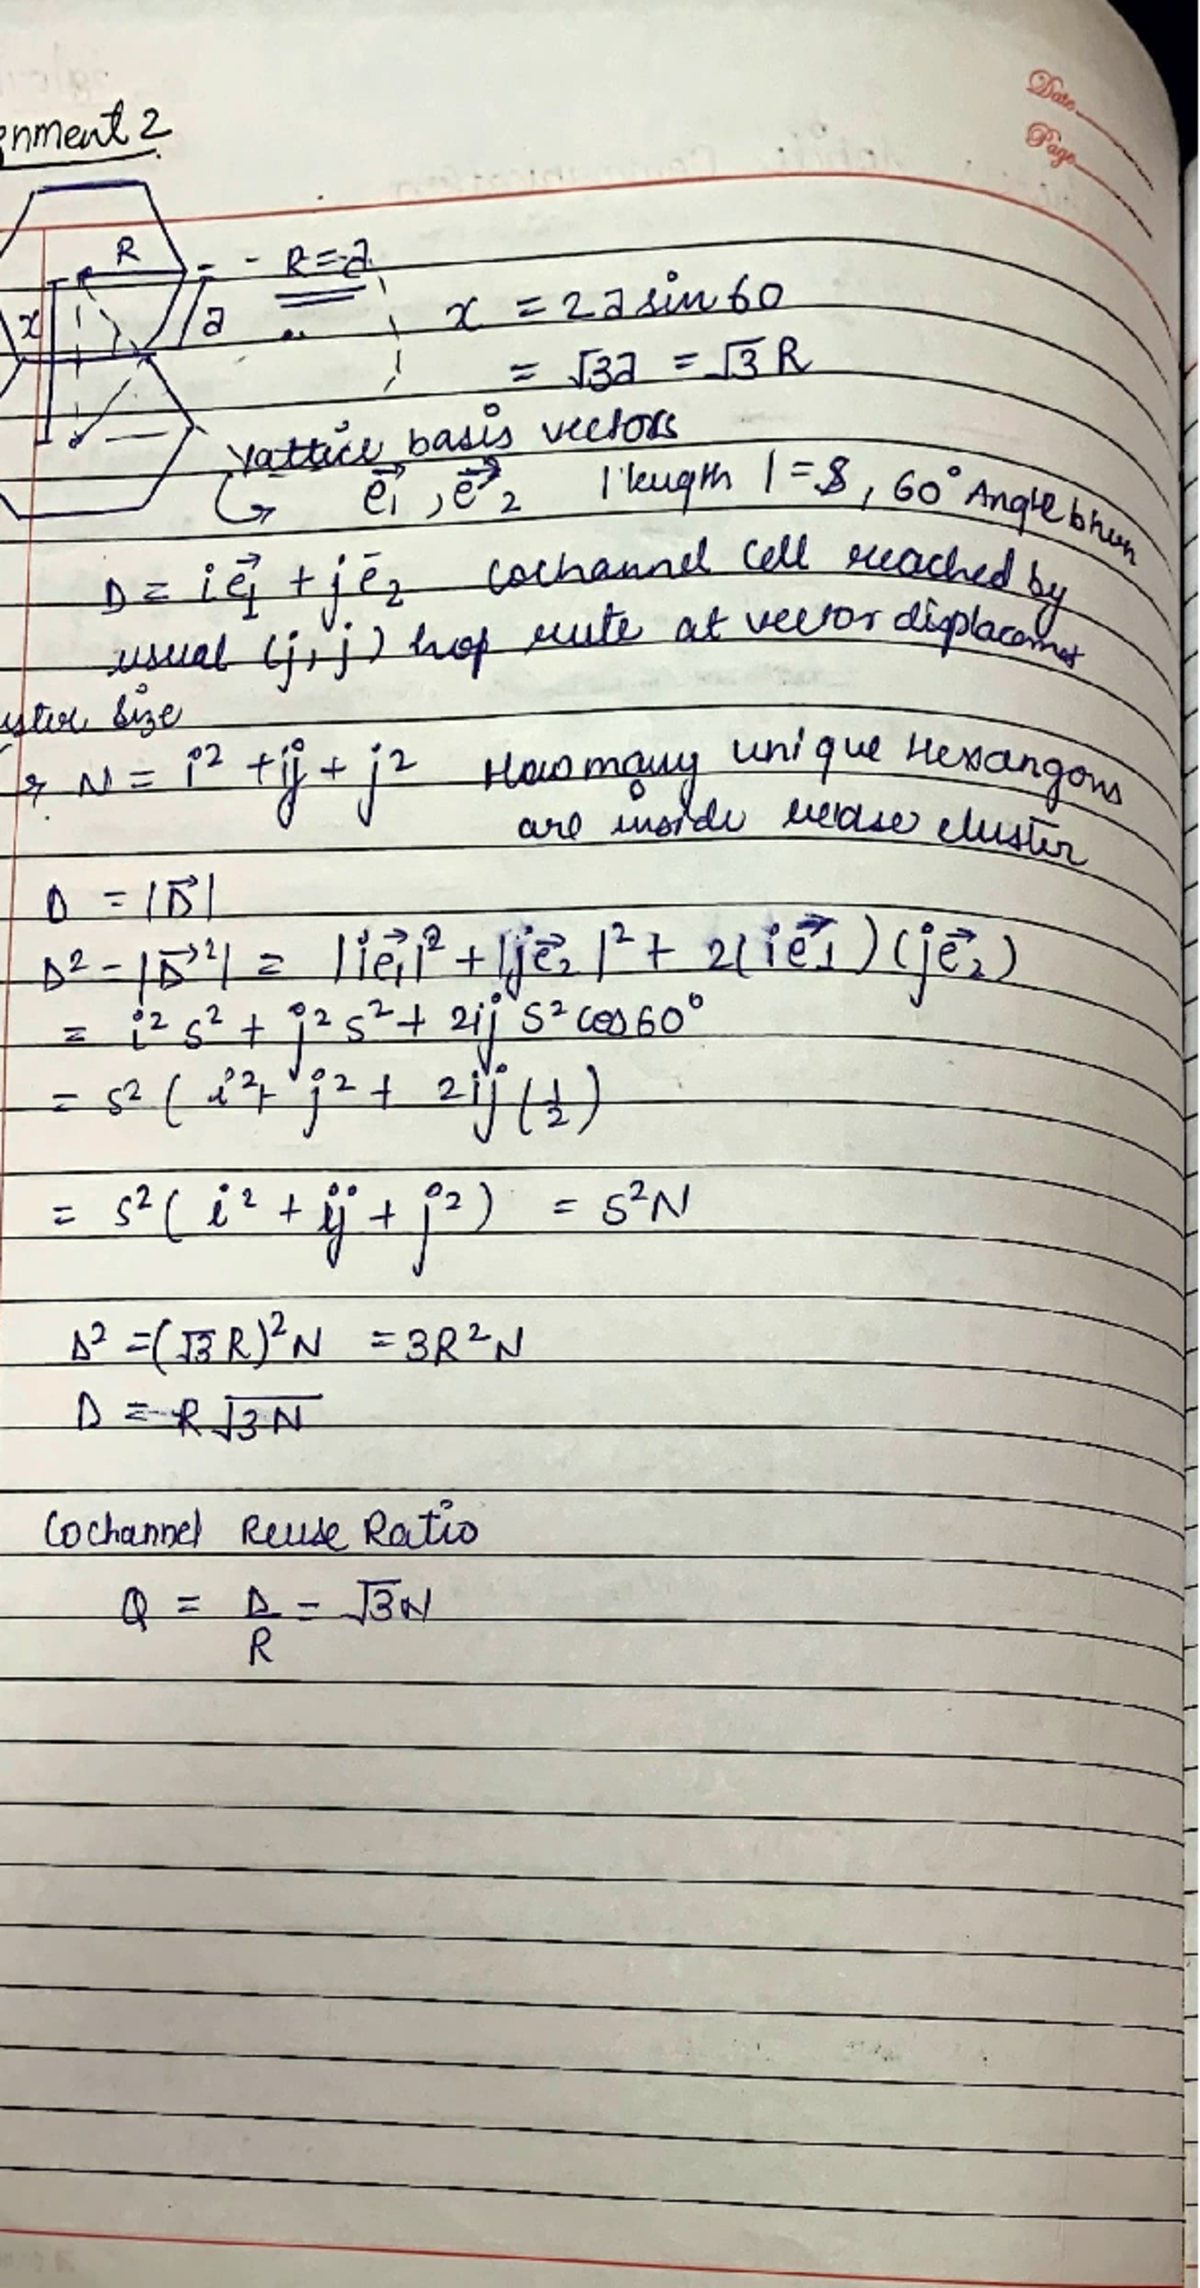 Date
Page
gnment 2
R
- R = a
x
a
x = 2a sin 60
= √3a = √3 R
Lattice basis vectors
e⃗1, e⃗2 |length| = S, 60° Angle btwn
D = i e⃗1 + j e̅2 cochannel cell reached by
usual (j, j) hop route at vector displacement
uster size
N = i² + ij + j² How many unique Hexangons
are inside reuse cluster
D = |D⃗|
D² - |D⃗²| = |i e⃗1|² + |j e⃗2|² + 2(i e⃗1)(j e⃗2)
= i² s² + j² s² + 2ij S² cos 60°
= s² ( i² + j² + 2ij (1/2)
= s² ( i² + ij + j²) = s²N
D² = (√3 R)² N = 3R²N
D = R √3N
Cochannel Reuse Ratio
Q = D/R = √3N